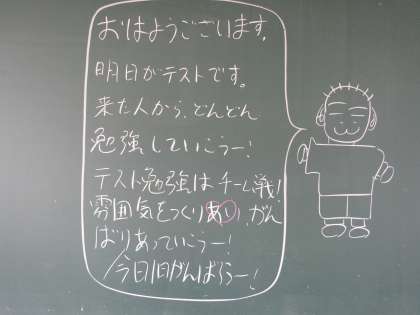 おはようございます。
明日がテストです。
来た人から、どんどん
勉強していこうー！
テスト勉強はチーム戦！
雰囲気をつくりあい、がん
ばりあっていこうー！
今日1日がんばろうー！